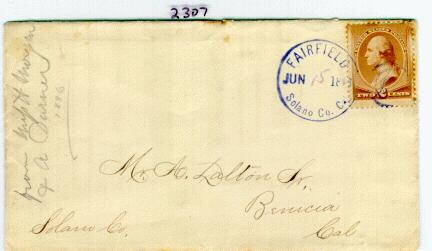 2307
from Miss H Morgan
& A Turner
1886
FAIRFIELD
JUN 15 188
Solano Co. C
TWO 2 CENTS
Mr. A. Dalton Sr.
Benicia
Solano Co.
Cal.